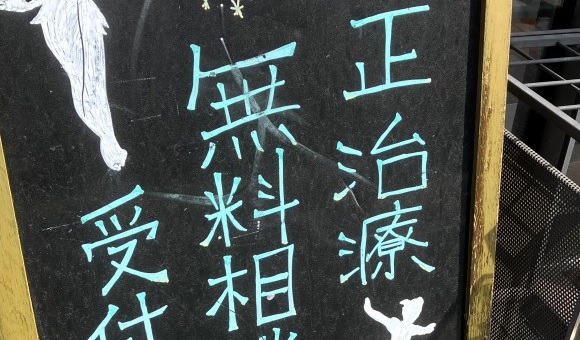 正治療
無料相
受付